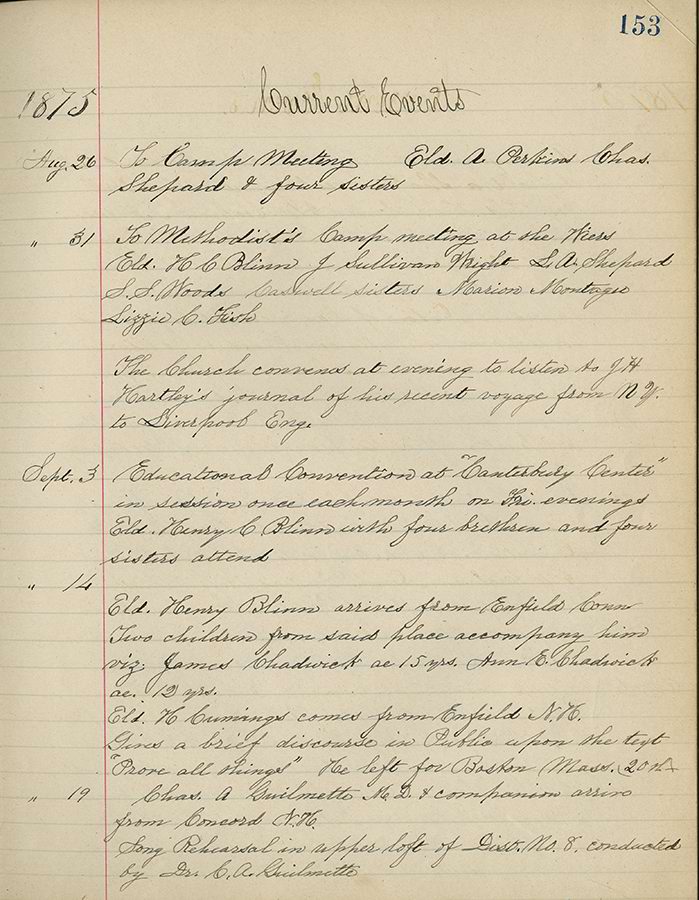 153
1875 Current Events
Aug. 26 To Camp Meeting Eld. A. Perkins Chas.
Shepard & four sisters
" 31 To Methodist's Camp meeting at the Wiers
Eld. H C Blinn J Sullivan Wright L. A. Shepard
S. S. Woods Caswell sisters Marion Montague
Lizzie C. Fish
The Church convenes at evening to listen to J H
Hartley's journal of his recent voyage from N Y.
to Liverpool Eng.
Sept. 3 Educational Convention at "Canterbury Center"
in session once each month on Fri. evenings
Eld. Henry C Blinn with four brethren and four
sisters attend
" 14
Eld. Henry Blinn arrives from Enfield Conn
Two children from said place accompany him
viz: James Chadwick ae 15 yrs. Ann E. Chadwick
ae. 12 yrs.
Eld. H Cumings comes from Enfield N.H.
Gives a brief discourse in Public upon the text
"Prove all things" He left for Boston Mass. 20th
" 19 Chas. A Guilmette M.D. & companion arrive
from Concord N.H.
Song Rehearsal in upper loft of Dist. No. 8. conducted
by Dr. C. A. Guilmette